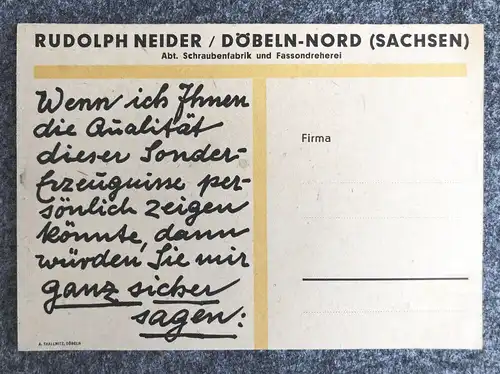 RUDOLPH NEIDER / DÖBELN-NORD (SACHSEN)
Abt. Schraubenfabrik und Fassondreherei
Wenn ich Ihnen
die Qualität
dieser Sonder-
Erzeugnisse per-
sönlich zeigen
könnte, dann
würden Sie mir
ganz sicher
sagen:
Firma
A. THALLWITZ, DÖBELN